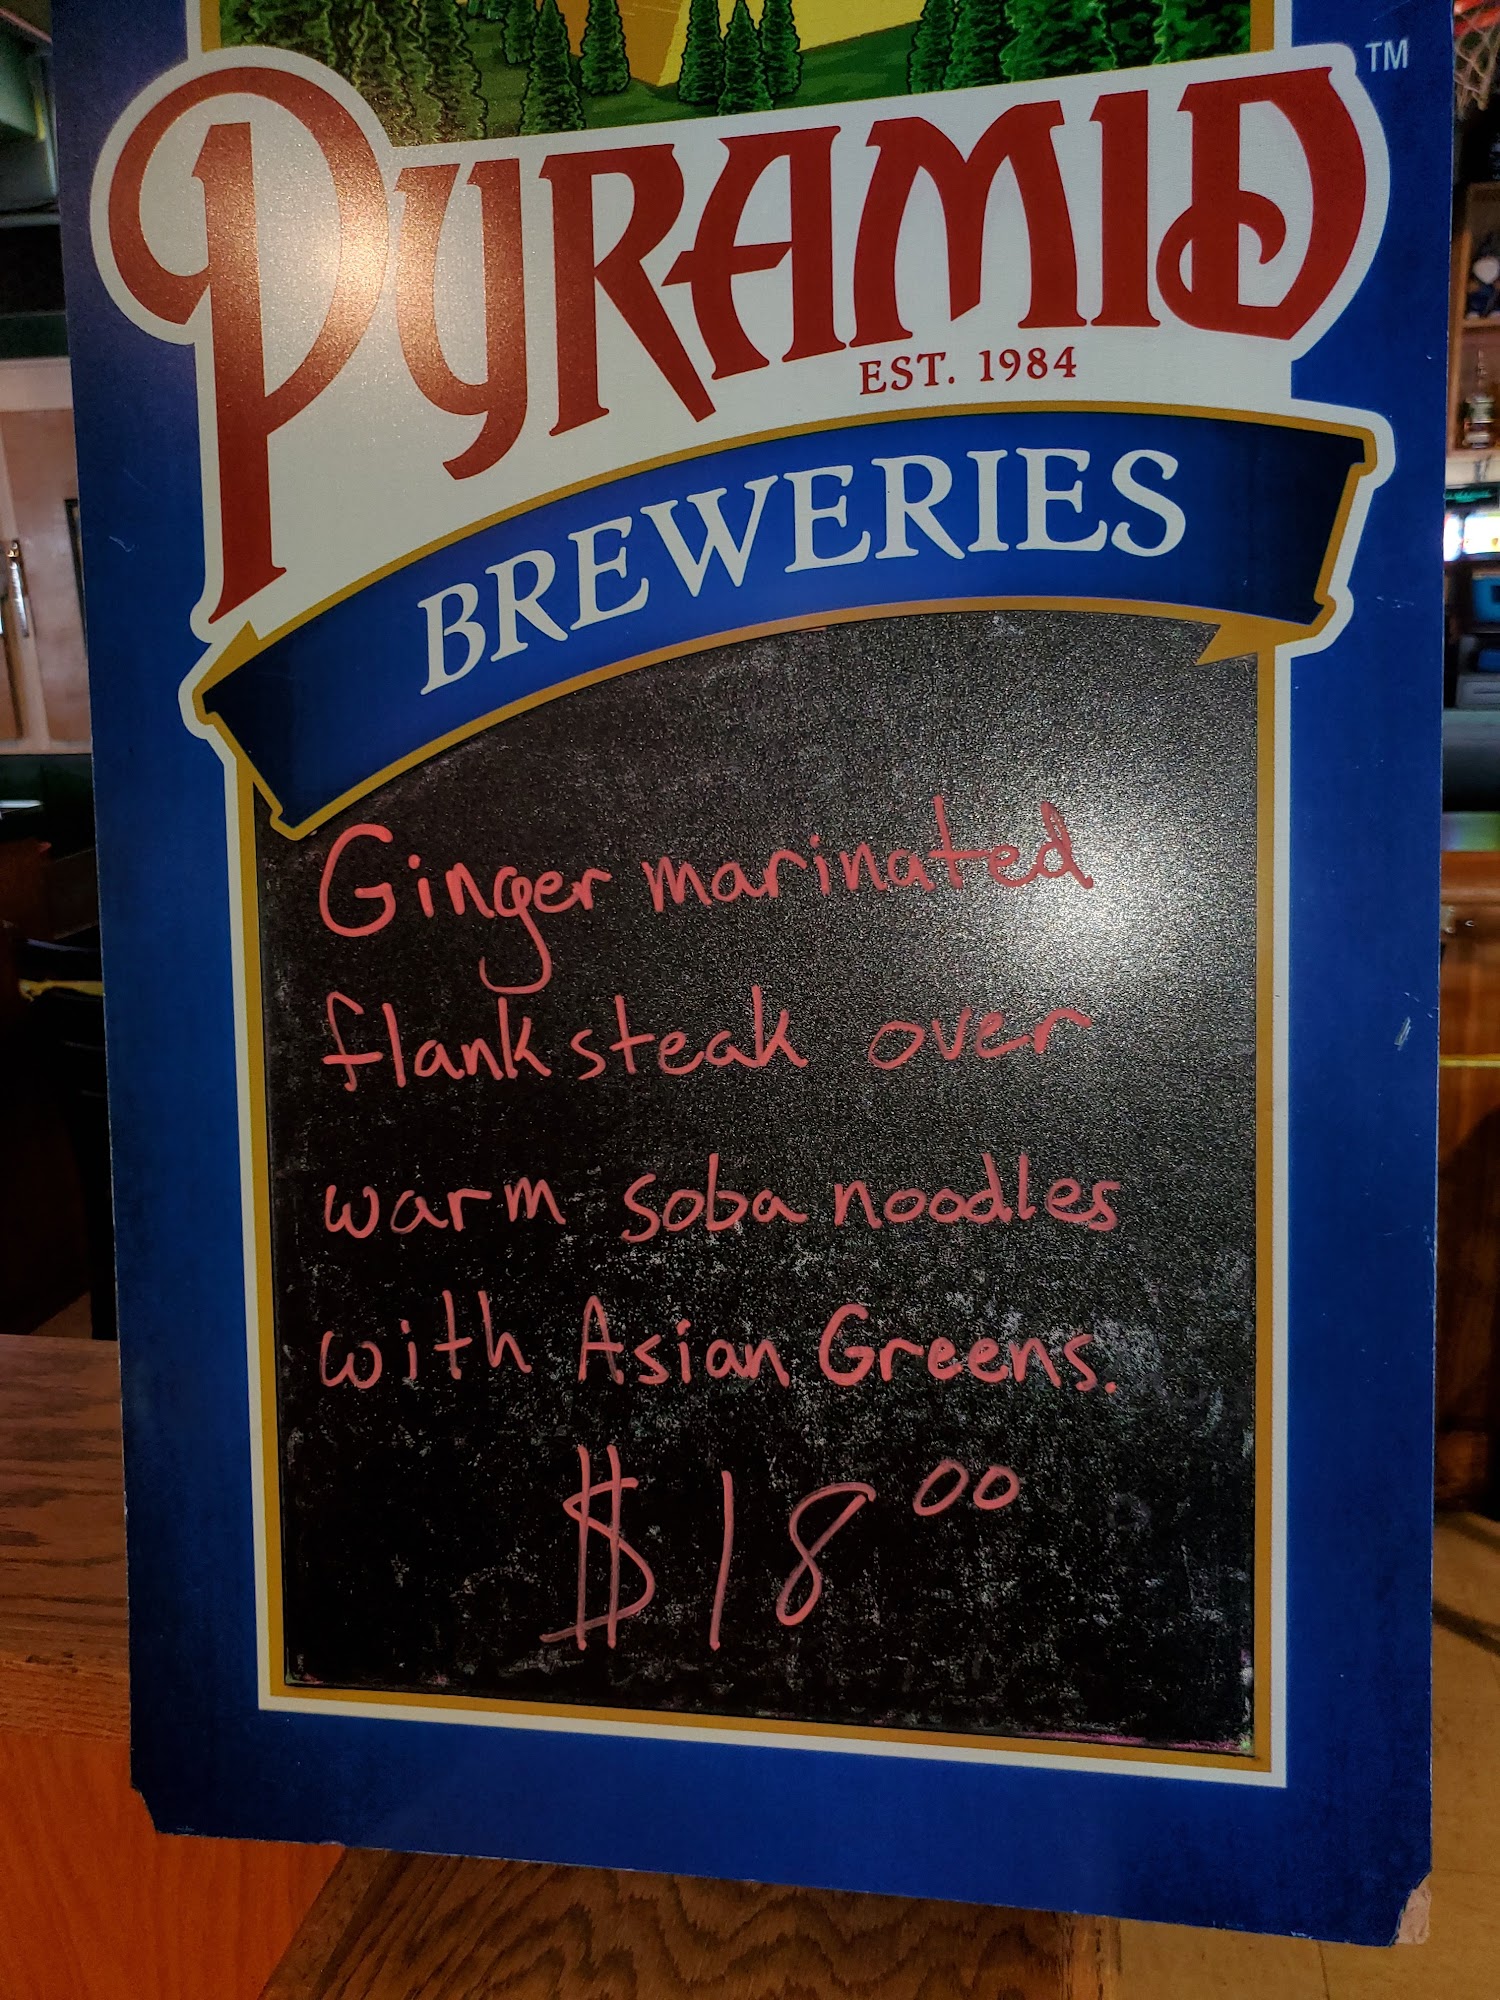 PYRAMID
TM
EST. 1984
BREWERIES
Ginger marinated
flank steak over
warm soba noodles
with Asian Greens.
$18 00